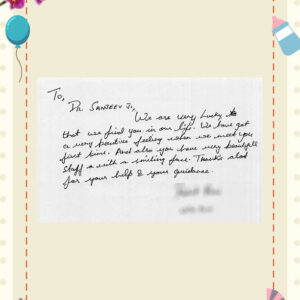 To,
Dr. Sanjeev Ji,
We are very lucky to
that we find you in our life. We have got
a very positive feeling when we meet you
first time. And also you have very beautiful
Staff & with a smiling face. Thanks alot
for your help & your guidance.